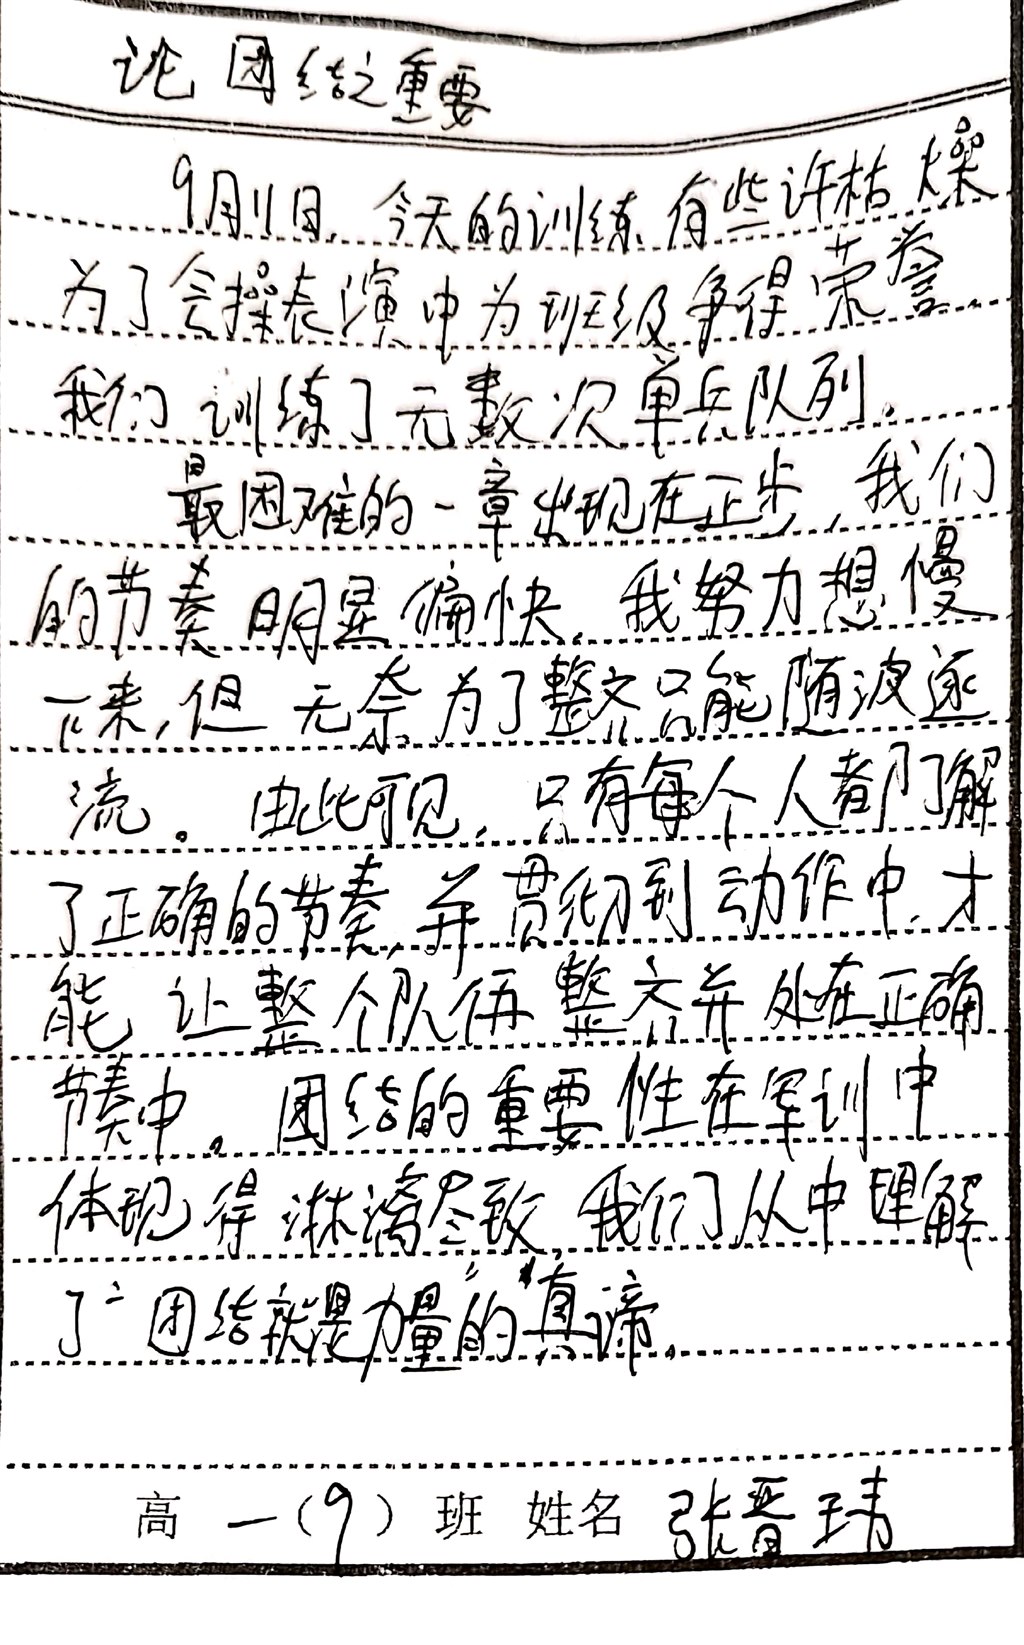 论团结之重要
9月11日,今天的训练有些许枯燥
为了会操表演中为班级争得荣誉
我们训练了无数次单兵队列.
最困难的一章出现在正步,我们
的节奏明显偏快.我努力想慢
下来,但无奈为了整齐只能随波逐
流。由此可见,只有每个人都了解
了正确的节奏,并贯彻到动作中,才
能让整个队伍整齐并处在正确
节奏中。团结的重要性在军训中
体现得淋漓尽致,我们从中理解
了"团结就是力量"的真谛.
高一(9)班 姓名 张晋玮